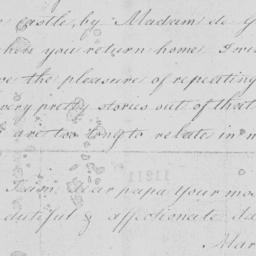 castle, by Madam de G
when you return home I wi
the pleasure of repeating
very pretty stories out of that
are too long to relate in m
I am dear papa your mo
dutiful & affectionate da
Mar